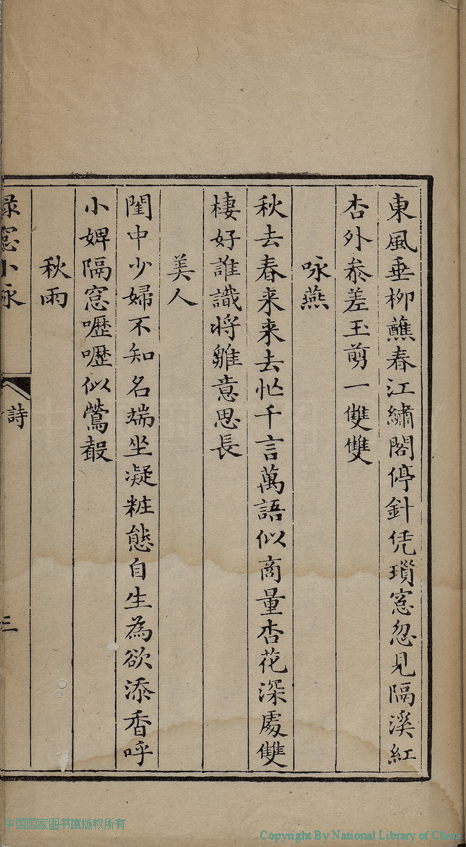 東風垂柳蘸春江繡閣停針凭瑣窓忽見隔溪紅
杏外叅差玉剪一雙雙
咏燕
秋去春来来去忙千言萬語似商量杏花深處雙
棲好誰識将雛意思長
美人
閨中少婦不知名端坐凝粧態自生為欲添香呼
小婢隔窓嚦嚦似鶯聲
秋雨
緑窓小詠
詩
三
中国国家图书馆版权所有
Copyright By National Library of China